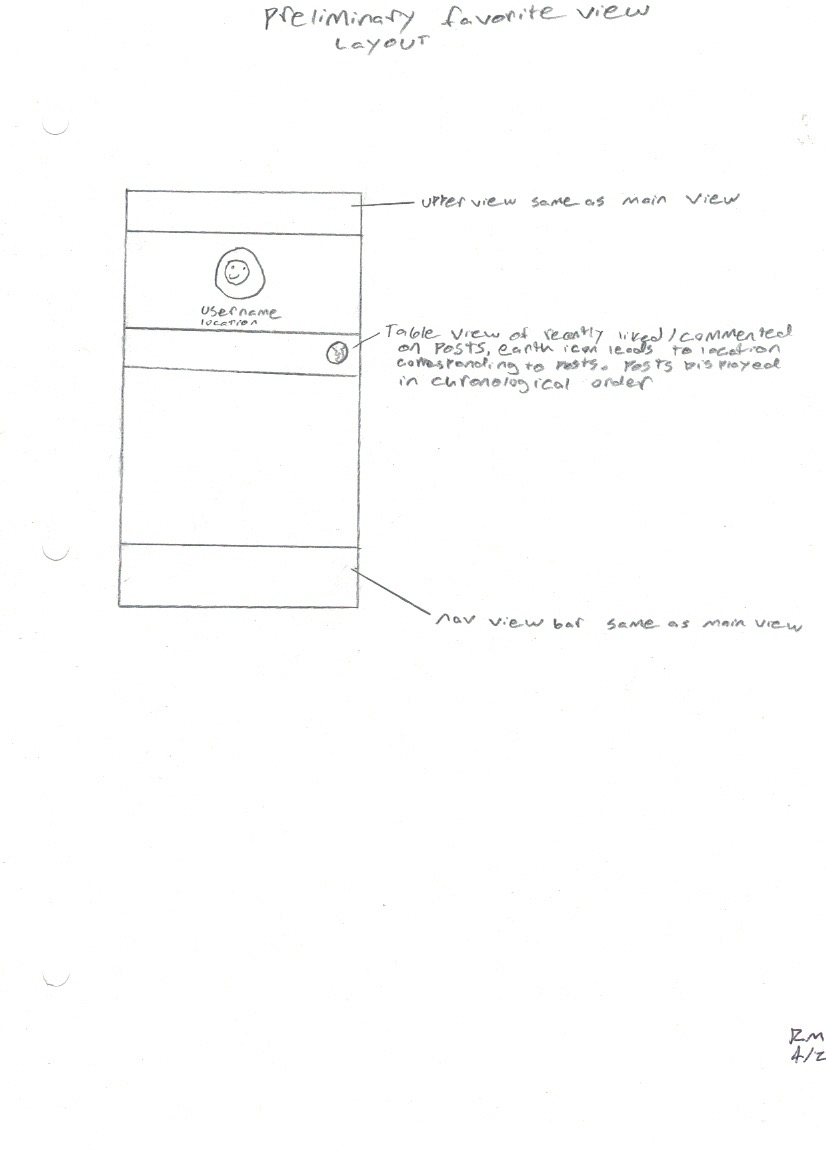 Preliminary favorite view
Layout
upper view same as main view
username
location
Table view of recently liked/commented
on posts, earth icon leads to location
corresponding to posts. Posts displayed
in chronological order
nav view bar same as main view
RM
4/2